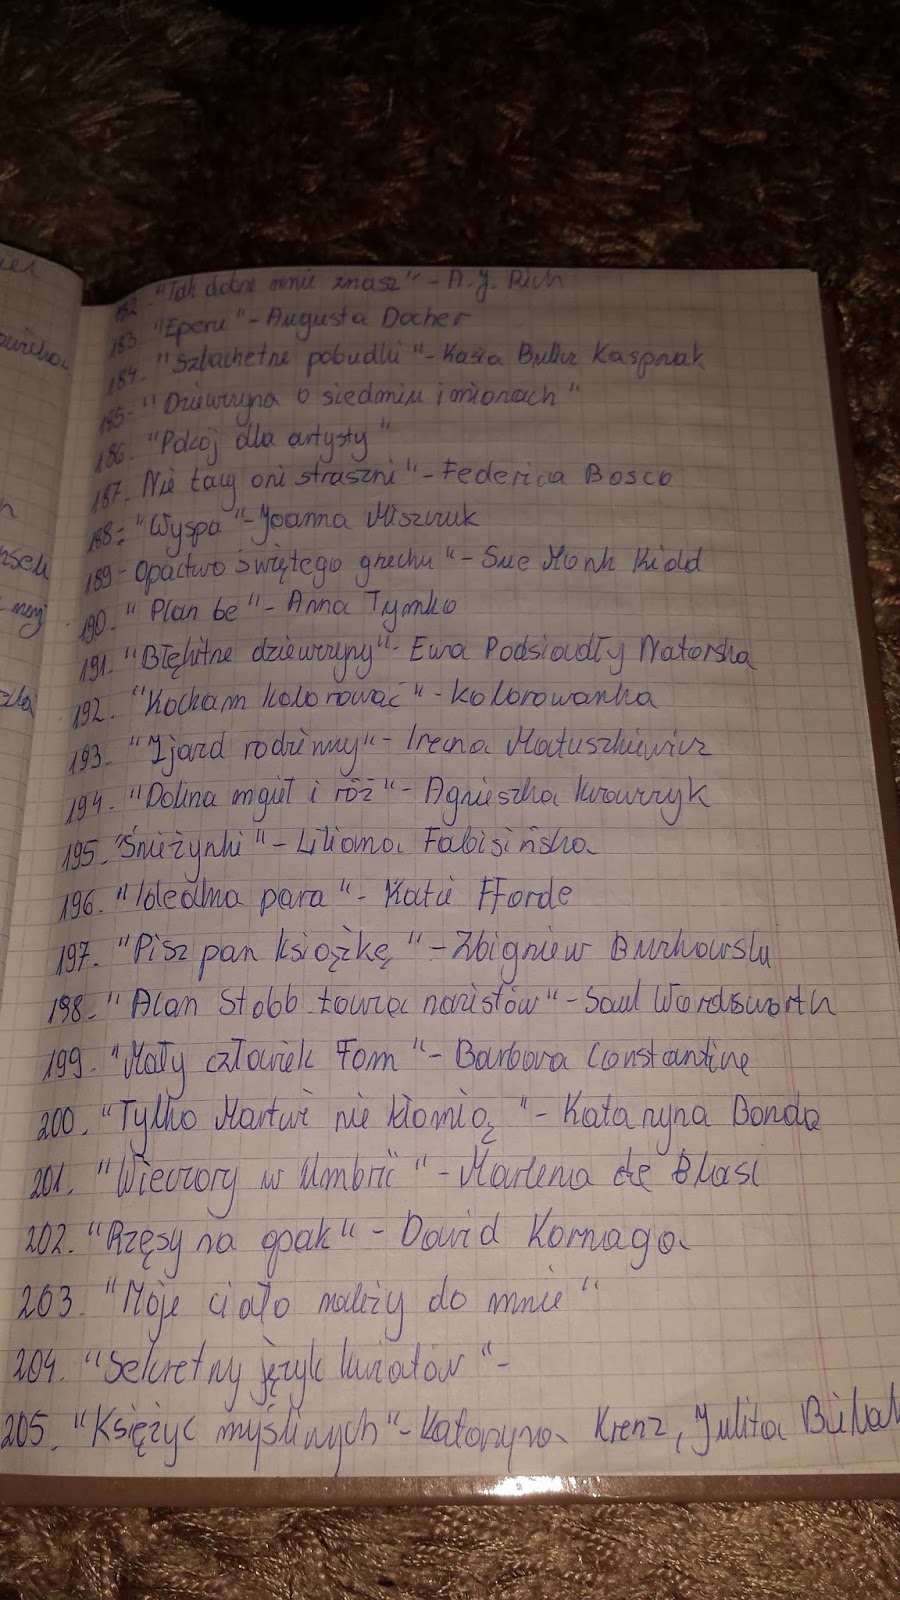 182. "Tak dobrze mnie znasz" - A.J. Rich
183. "Eperu" - Augusta Docher
184. "Szlachetne pobudki" - Kasia Bulicz Kasprzak
185. "Dziewczyna o siedmiu imionach"
186. "Pokój dla artysty"
187. Nie tacy oni straszni" - Federica Bosco
188. "Wyspa" - Joanna Miszczuk
189 - Opactwo świętego grzechu" - Sue Monk Kidd
190. "Plan be" - Anna Tymko
191. "Błękitne dziewczyny" - Ewa Podsiadły Natorska
192. "Kocham kolorować" - kolorowanka
193. "Zjazd rodzinny" - Irena Matuszkiewicz
194. "Dolina mgieł i róż" - Agnieszka Krawczyk
195. "Śnieżynki" - Liliana Fabisińska
196. "Idealna para" - Katie Fforde
197. "Pisz pan książkę" - Zbigniew Burkowski
198. "Alan Stobb Łowca nazistów" - Saul Wordsworth
199. "Mały człowiek Tom" - Barbara Constantine
200. "Tylko Martwi nie kłamią" - Katarzyna Bonda
201. "Wieczory w Umbrii" - Marlena de Blasi
202. "Rzęsy na opak" - Dawid Kornaga
203. "Moje ciało należy do mnie"
204. "Sekretny język kwiatów" -
205. "Księżyc myśliwych" - Katarzyna Krenz, Julita Bielak